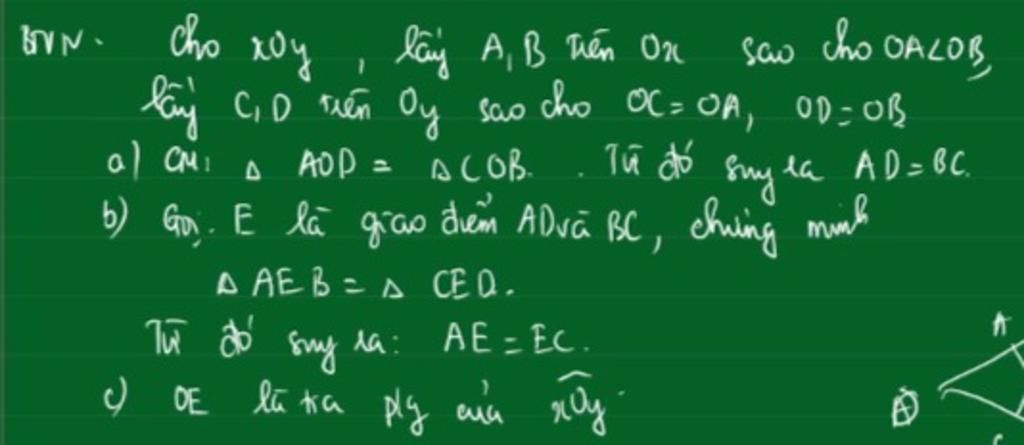 BTVN. Cho xOy, lấy A, B trên Ox sao cho OA<OB,
lấy C, D trên Oy sao cho OC = OA, OD = OB
a) CM: △ AOD = △ COB. Từ đó suy ra AD = BC.
b) Gọi E là giao điểm AD và BC, chứng minh
△ AEB = △ CED.
Từ đó suy ra: AE = EC.
c) OE là tia p/g của xOy
A
C